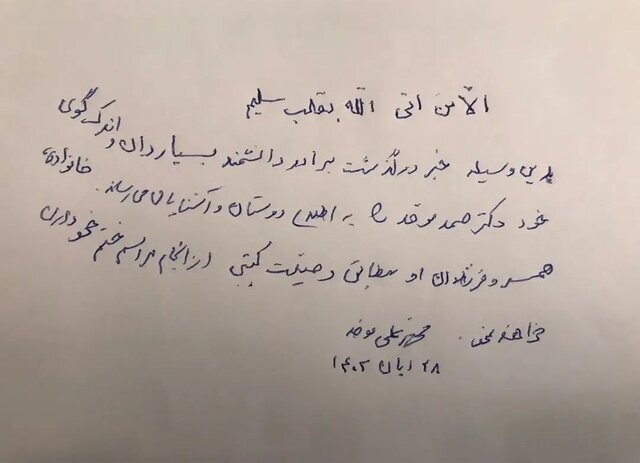 الّا من اتی الله بقلب سلیم
بدین وسیله خبر درگذشت برادر دانشمند بسیاردان و اندک گوی
خود دکتر صمد موحد را به اطلاع دوستان و آشنایان می رساند. خانواده،
همسر و فرزندان او مطابق وصیت کتبی از انجام مراسم ختم خودداری
خواهند نمود. محمدعلی موحد
۲۸ آبان ۱۴۰۲